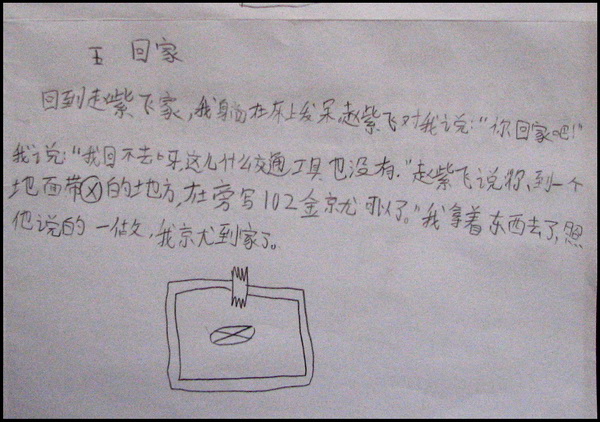 五 回家
回到赵紫飞家,我躺在床上发呆,赵紫飞对我说:“你回家吧!”
我说:“我回不去呀,这儿什么交通工具也没有.”赵紫飞说 到一个
地面带ⓧ的地方,在旁写102金就可以了。”我拿着东西去了,照
他说的一做,我就到家了。